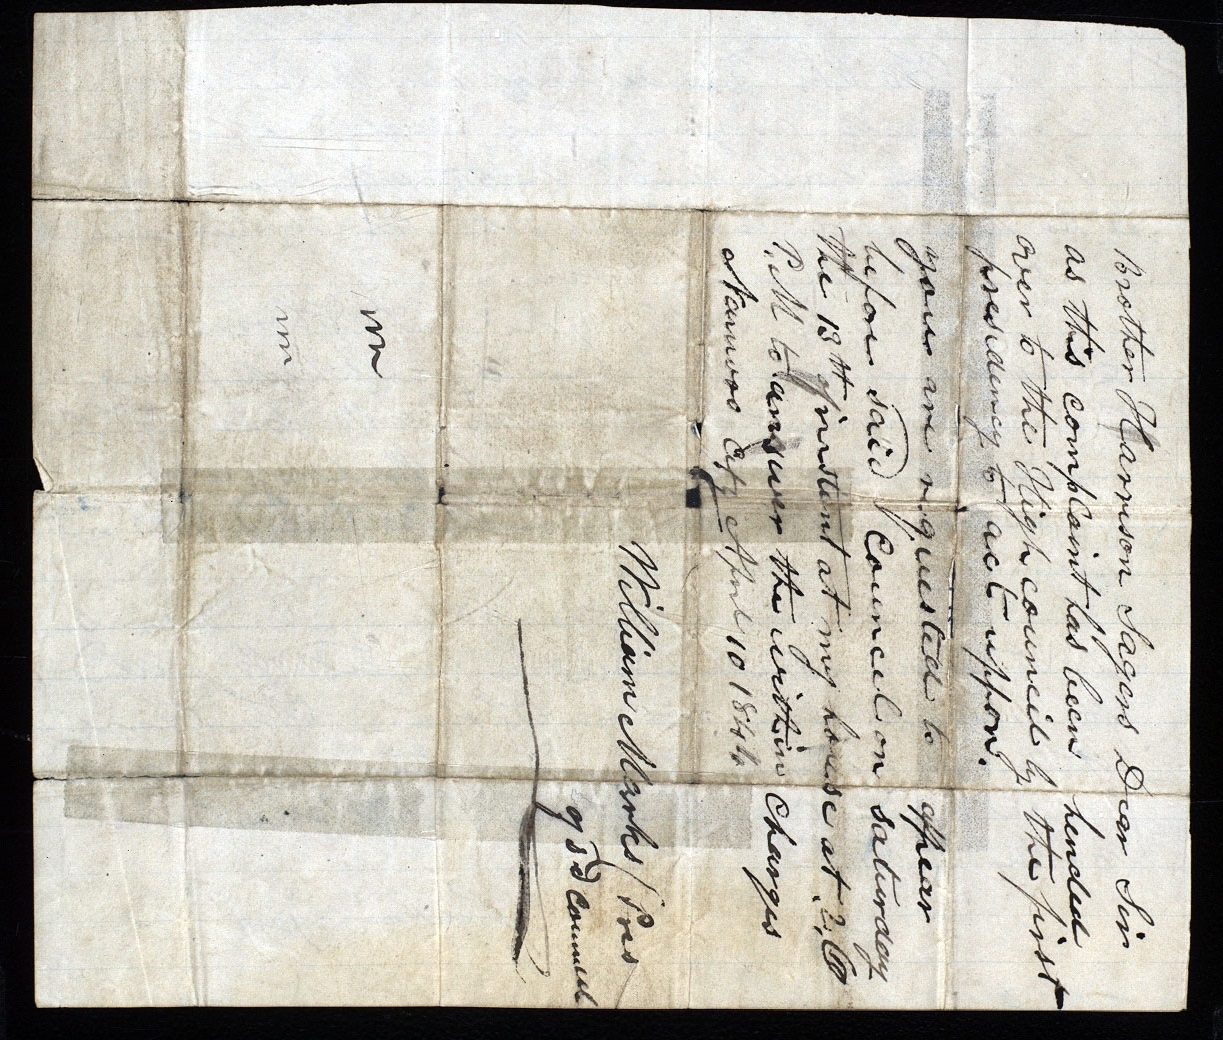 Brother Harrison Sagers Dear Sir
as this complaint has been handed
over to the High council by the first
presidency to act uppon.
your are requested to appear
before said Council on saturday
the 13th of instant at my house at 2, O
P.M to answer the within charges
Nauvoo City April 10 1844
William Marks Pres
of sd council
m
m